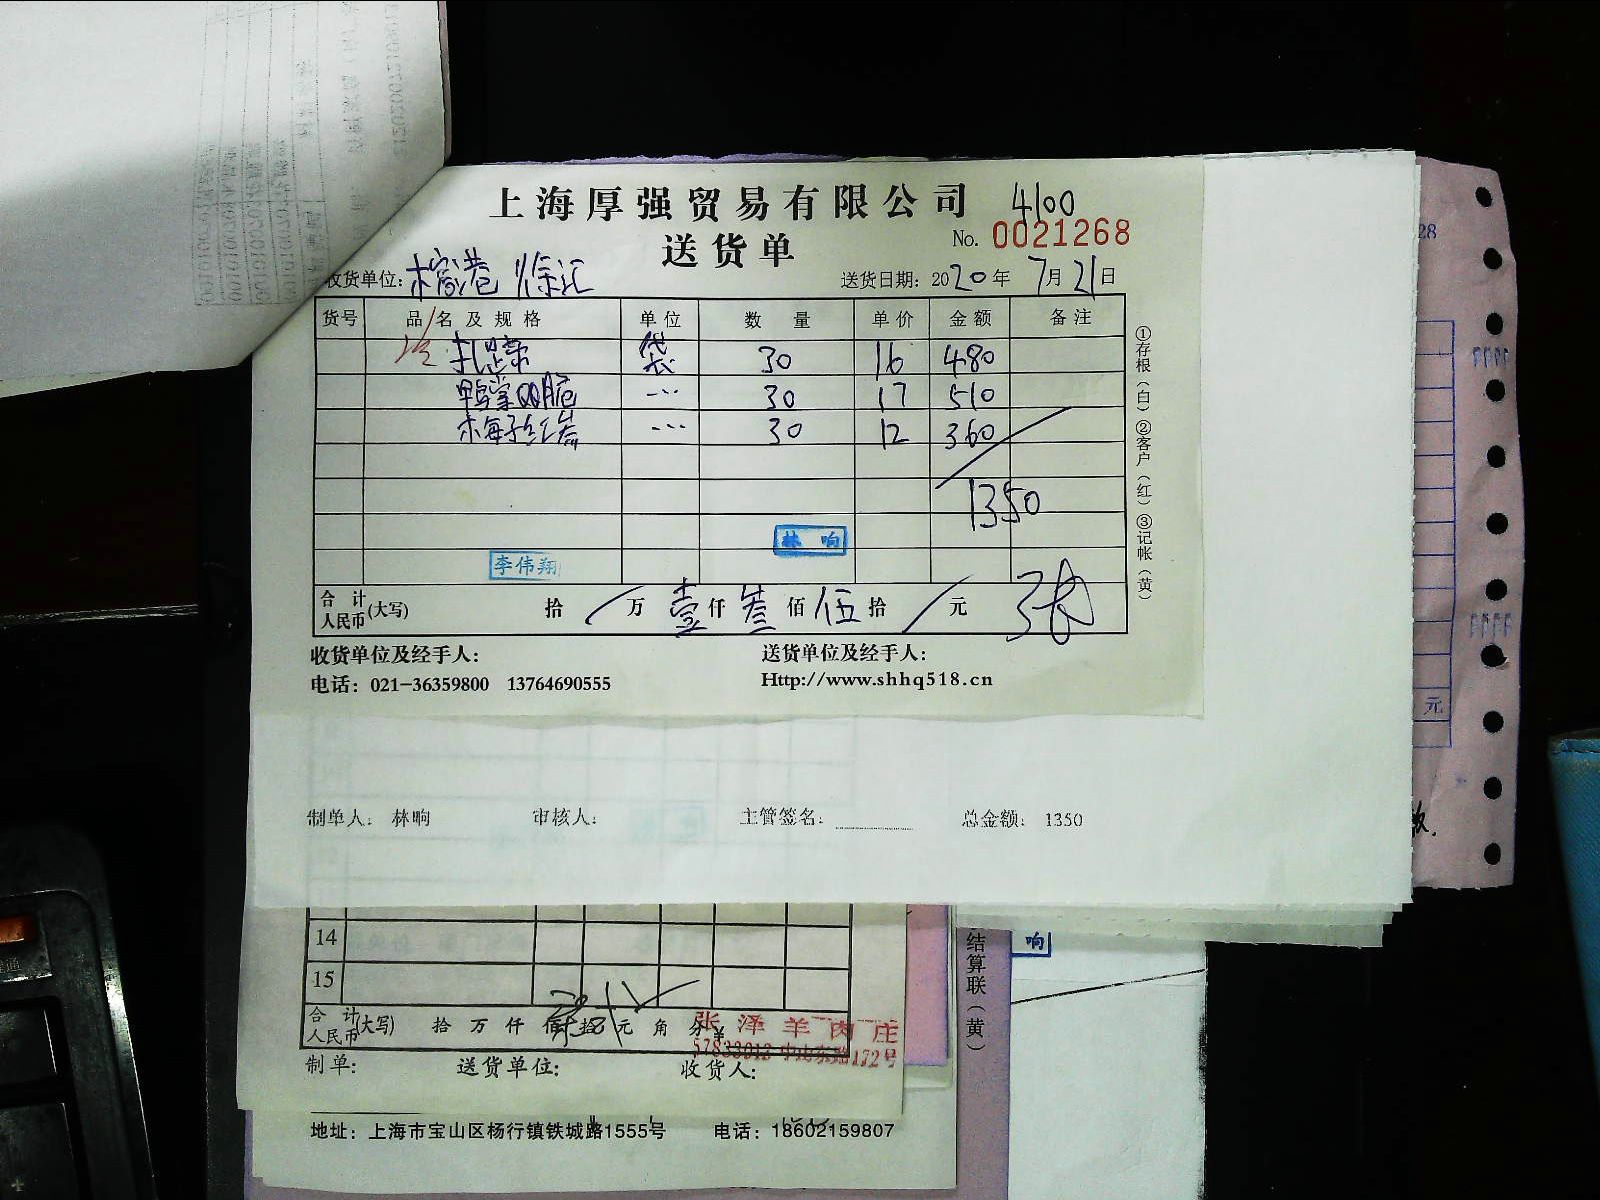 上海厚强贸易有限公司 4100
送货单 No. 0021268
收货单位: 徐汇 送货日期: 2020年7月21日
货号 品名及规格 单位 数量 单价 金额 备注
袋 30 16 480
鸭掌QQ脆 --- 30 17 510
--- 30 12 360
1350
林 响
李伟翔
合计人民币(大写) 拾 / 万 壹 仟 叁 佰 伍 拾 / 元 张
收货单位及经手人: 送货单位及经手人:
电话: 021-36359800 13764690555 Http://www.shhq518.cn
①存根(白)②客户(红)③记帐(黄)
制单人: 林响 审核人: 主管签名: 总金额: 1350
14
15
合计人民币(大写) 拾 万 仟 佰 拾 元 角 分 ¥
张泽羊肉庄
制单: 送货单位: 收货人:
地址: 上海市宝山区杨行镇铁城路1555号 电话: 18602159807
结算联(黄)
响
28
元
款.